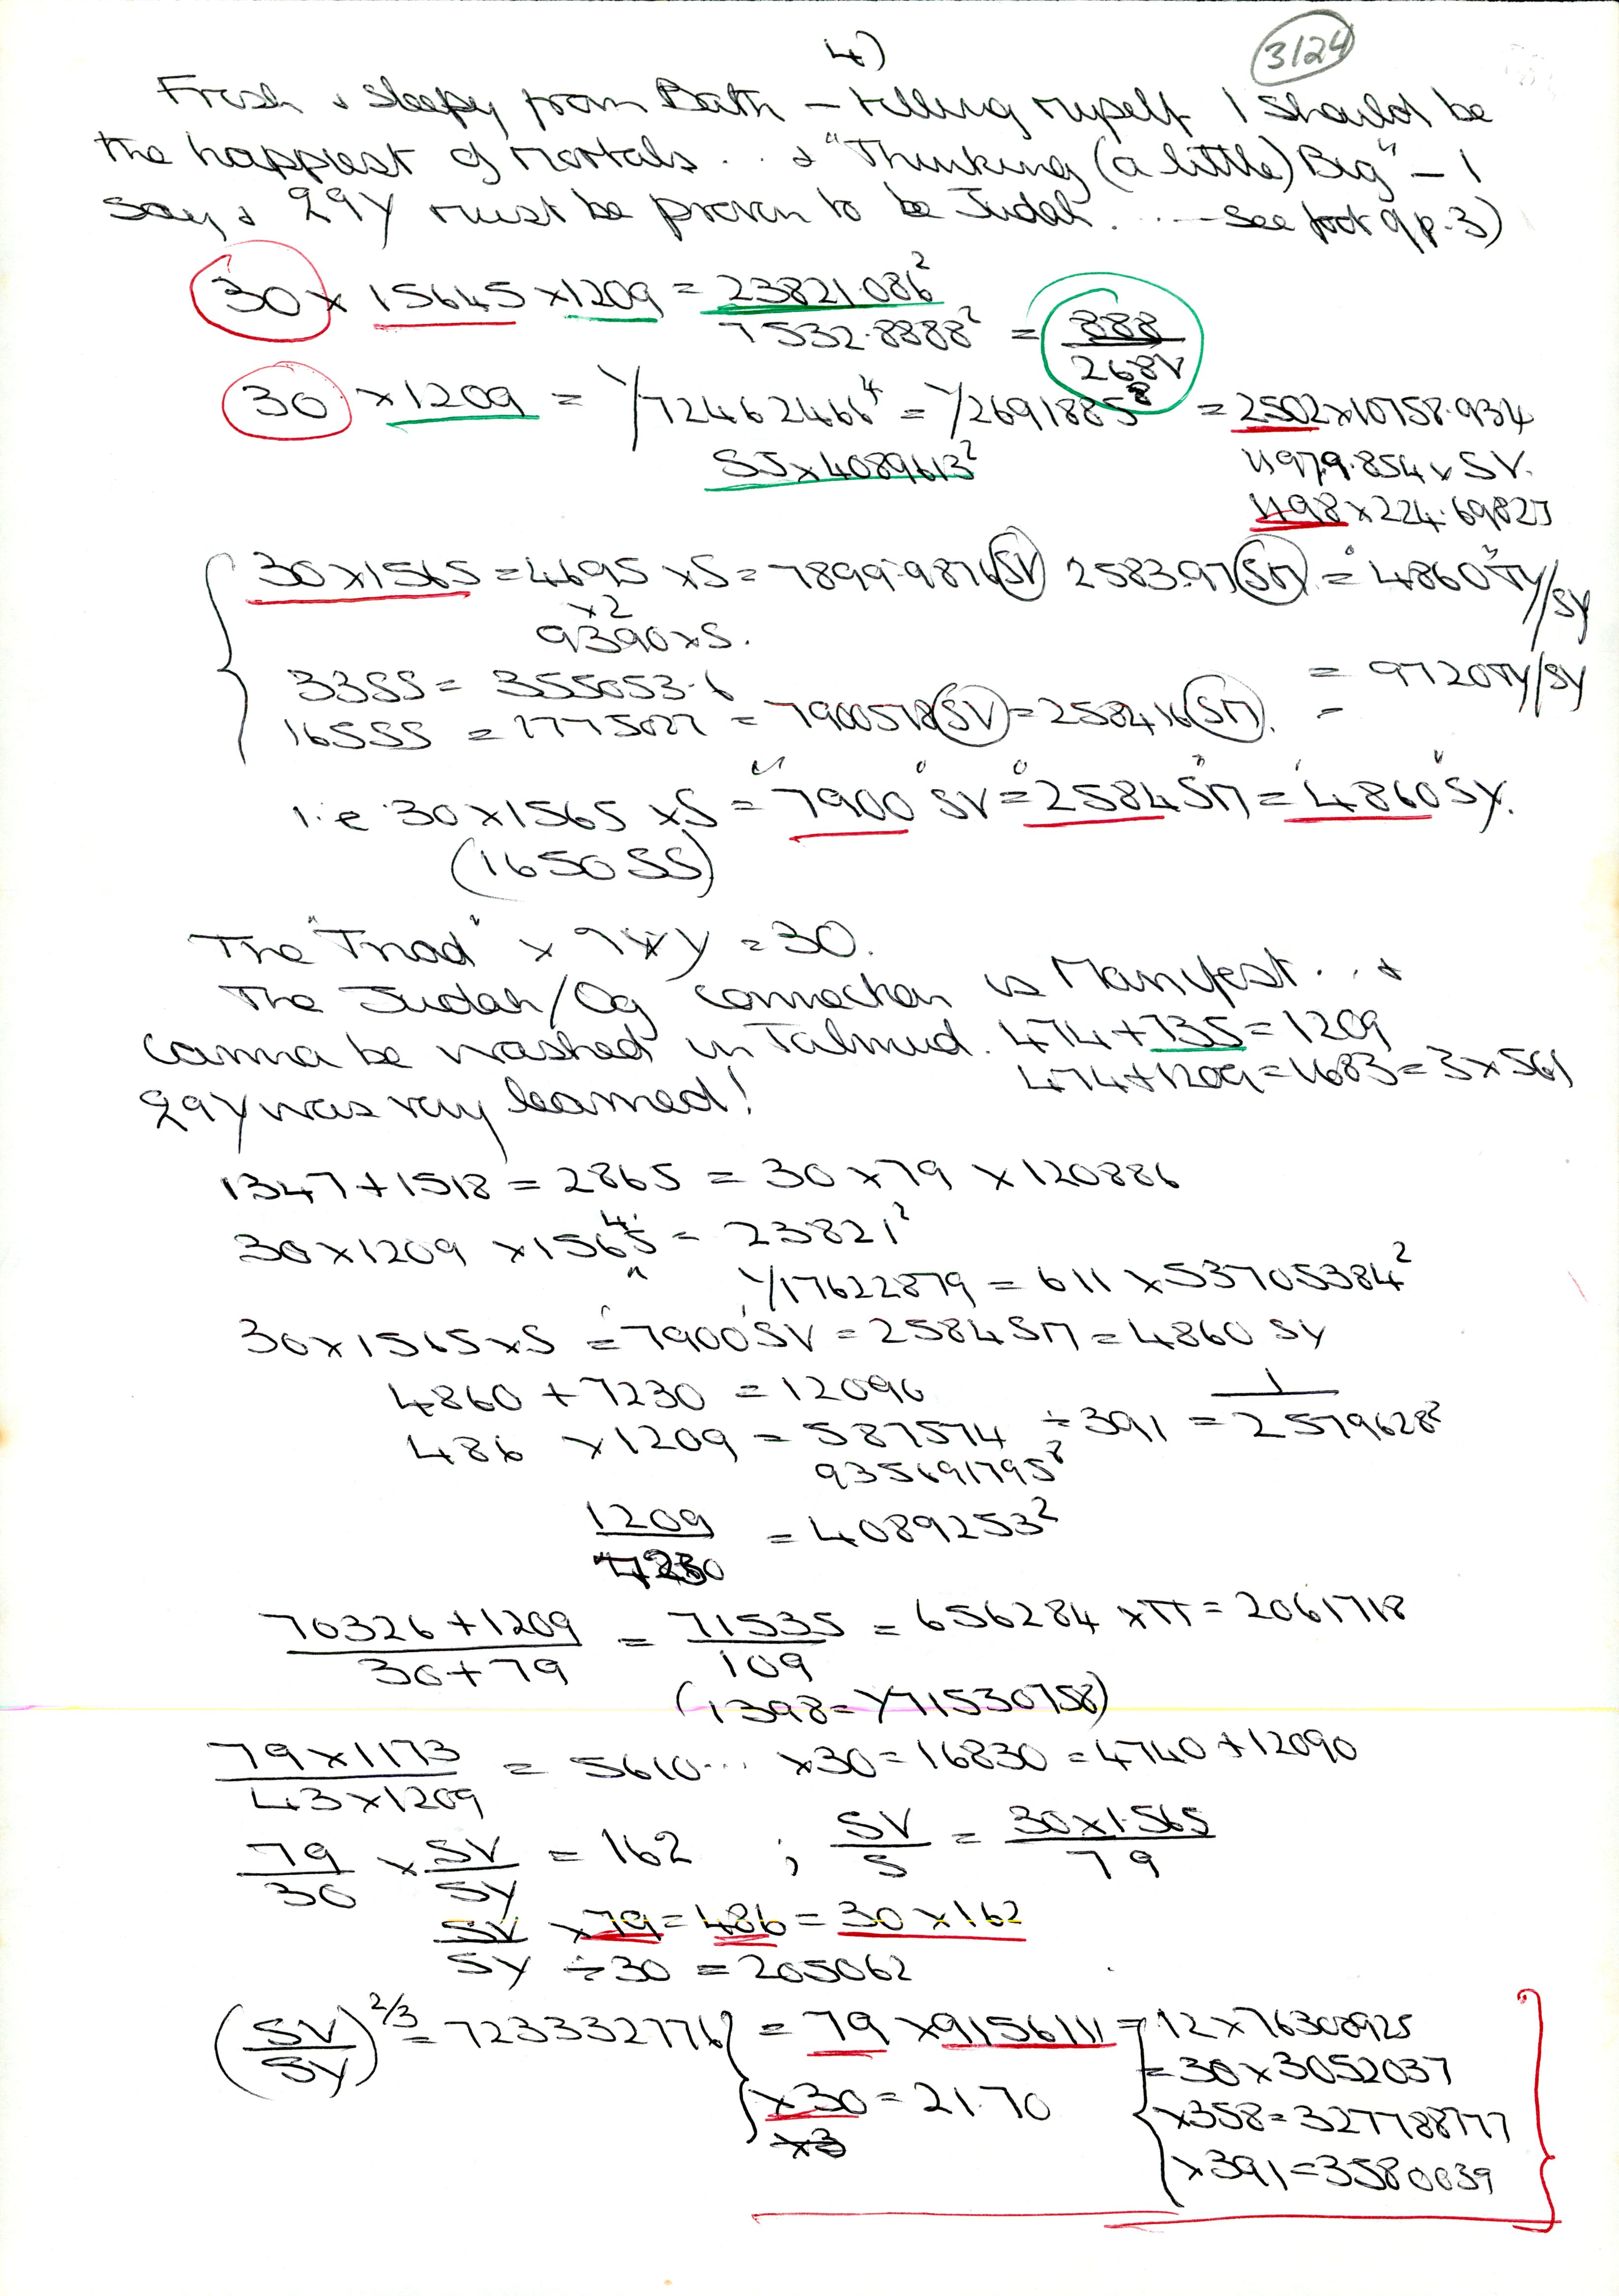 4)
3124
Fresh & sleepy from Bath – telling myself I should be
the happiest of mortals... & "Thinking (a little) Big" – I
say & 29Y must be proven to be Judah. ... See foot of p.3)
30 × 15645 × 1209 = 23821.086²
7532.8888² = 888/268V
30 × 1209 = Y72462466⁴ = Y2691885⁸ = 2502×10758.934
SS×4089613²
11979.854×SV.
1198×224.69827
30×1565 = 4695 ×S = 7899.9876 SV 2583.97 SΠ = 4860 πY/SY
×2
9390×S. = 9720πY/SY
33SS = 355053.6
165SS = 1775027 = 7900578 SV = 258416 SΠ. =
i.e 30×1565 ×S = 7900 SV = 2584 SΠ = 4860 SY.
(1650SS)
The "Triad" × 7×Y = 30.
The Judah/Og connection is Manifest... &
canna be washed in Talmud. 474+735=1209
474+1209=1683=3×561
29Y was very learned!
1347+1518 = 2865 = 30×79 ×120886
30×1209 ×15645 = 23821²
Y17622879 = 611×53705384²
30×1565×S = 7900 SV = 2584 SΠ = 4860 SY
4860 + 7230 = 12090
486 ×1209 = 587574 ÷391 = 1/2579628²
935691795⁸
1209/7230 = 4089253²
70326+1209/30+79 = 71535/109 = 656284 ×π = 2061718
(1398=Y71530758)
79×1173/43×1209 = 5610... ×30=16830=4740+12090
79/30 × SV/SY = 162 ; SV/S = 30×1.565/79
SV/SY ×79=486=30×162
÷30 = 205062
(SV/SY)^2/3 = 723332776 = 79 ×9156111 = 12×76300925
= 30×3052037
×30 = 21.70
×358=327788777
×3
×391=3580039